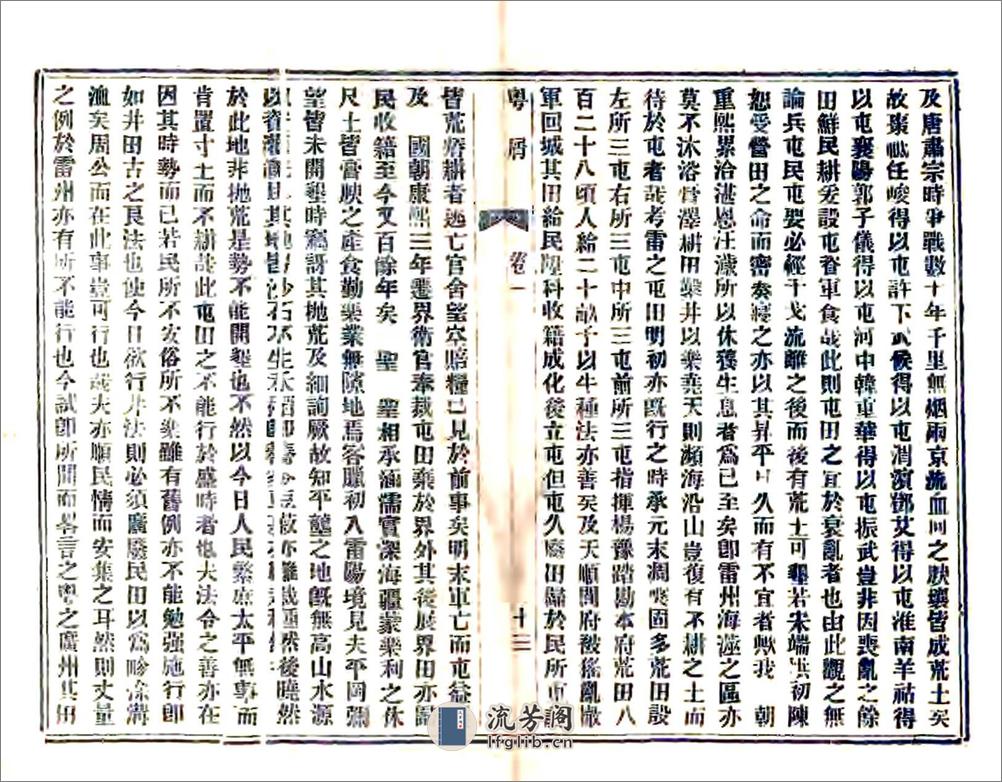 及唐肅宗時爭戰數十年千里無烟兩京流血回之腴壤皆成荒土矣
故棗祗任峻得以屯許下武候得以屯渭濱鄧艾得以屯淮南羊祜得
以屯襄陽郭子儀得以屯河中韓重華得以屯振武豈非因喪亂之餘
田鮮民耕爰設屯資軍食哉此則屯田之宜於衰亂者也由此觀之無
論兵屯民屯要必經干戈流離之後而後有荒土可墾若宋端拱初陳
恕受營田之命而密奏寢之亦以其昇平日久而有不宜者歟我 朝
重熙累洽湛恩汪濊所以休養生息者為已至矣即雷州海澨之區亦
莫不沐浴膏澤耕田鑿井以樂堯天則瀕海沿山豈復有不耕之土而
待於屯者哉考雷之屯田明初亦既行之時承元末凋喪固多荒田設
左所三屯右所三屯中所三屯前所三屯指揮楊豫踏勘本府荒田八
百二十八頃人給二十畝予以牛種法亦善矣及天順間府殘徭亂撤
軍回城其田給民陞科收籍成化後立屯但屯久廢田歸於民所
粵屑 卷一 十三
皆荒瘠耕者逃亡官舍望空賠糧已見於前事矣明末軍亡而屯益
及 國朝康熙三年遷界衛官奉裁屯田棄於界外其後展界田亦歸
民收籍至今又百餘年矣 聖聖相承涵濡實深海疆蒙樂利之休
尺土皆膏腴之產食勤樂業無隙地焉客臘初入雷陽境見夫平岡彌
望皆未開墾時竊訝其拋荒及細詢厥故知平壟之地既無高山水源
以資灌溉且其地皆沙石不生禾稻即
於此地非拋荒是勢不能開墾也不然以今日人民繁庶太平無事而
肯置寸土而不耕哉此屯田之不能行於盛時者也夫法令之善亦在
因其時勢而已若民所不安俗所不樂雖有舊例亦不能勉強施行即
如井田古之良法也使今日欲行井法則必須廣廢民田以為畛涂溝
洫矣周公而在此事豈可行也哉夫亦順民情而安集之耳然則丈量
之例於雷州亦有所不能行也今試即所聞而畧言之粵之廣州其田
流芳阁
lfglib.cn